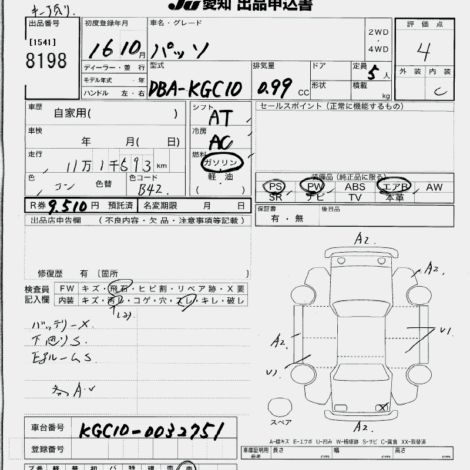 JU 愛知 出品申込書
出品番号 [1541] 8198
初度登録年月 16 10月
車名・グレード パッソ
2WD・4WD
評価点 4
ディーラー・並行
モデル年式 年
ハンドル 左・右
型式 DBA-KGC10
排気量 0.99 CC
ドア 形状
定員 5人
積載量 kg
外装 内装 C
車歴 自家用( )
シフト AT
セールスポイント (正常に機能するもの)
車検 年 月( 日)
冷房 AC
走行 11万1千693 km
燃料 ガソリン 軽油
色 コン 色替 色No. B42
装備品(純正品に限る)
PS PW ABS エアB AW
SR ナビ TV 本革
R券 9,510円 預託済 名変期限 月 日
保証書 有・無
後日品
出品店申告欄 (不良内容・欠品・注意事項等記載)
修復歴 有 [箇所
検査員記入欄 FW キズ・飛石・ヒビ割・リペア跡・X要
内装 キズ・汚レ・コゲ・穴・スレ・キレ・破レ
バッテリーX
下廻りS
A2.
A2.
A2.
A2.
U1
U1
X
スペア
車台番号 KGC10-0032751
登録番号
A-線キズ E-エクボ U-凹み W-補修跡 S-サビ C-腐食 XX-取替済
長さ 幅 高さ